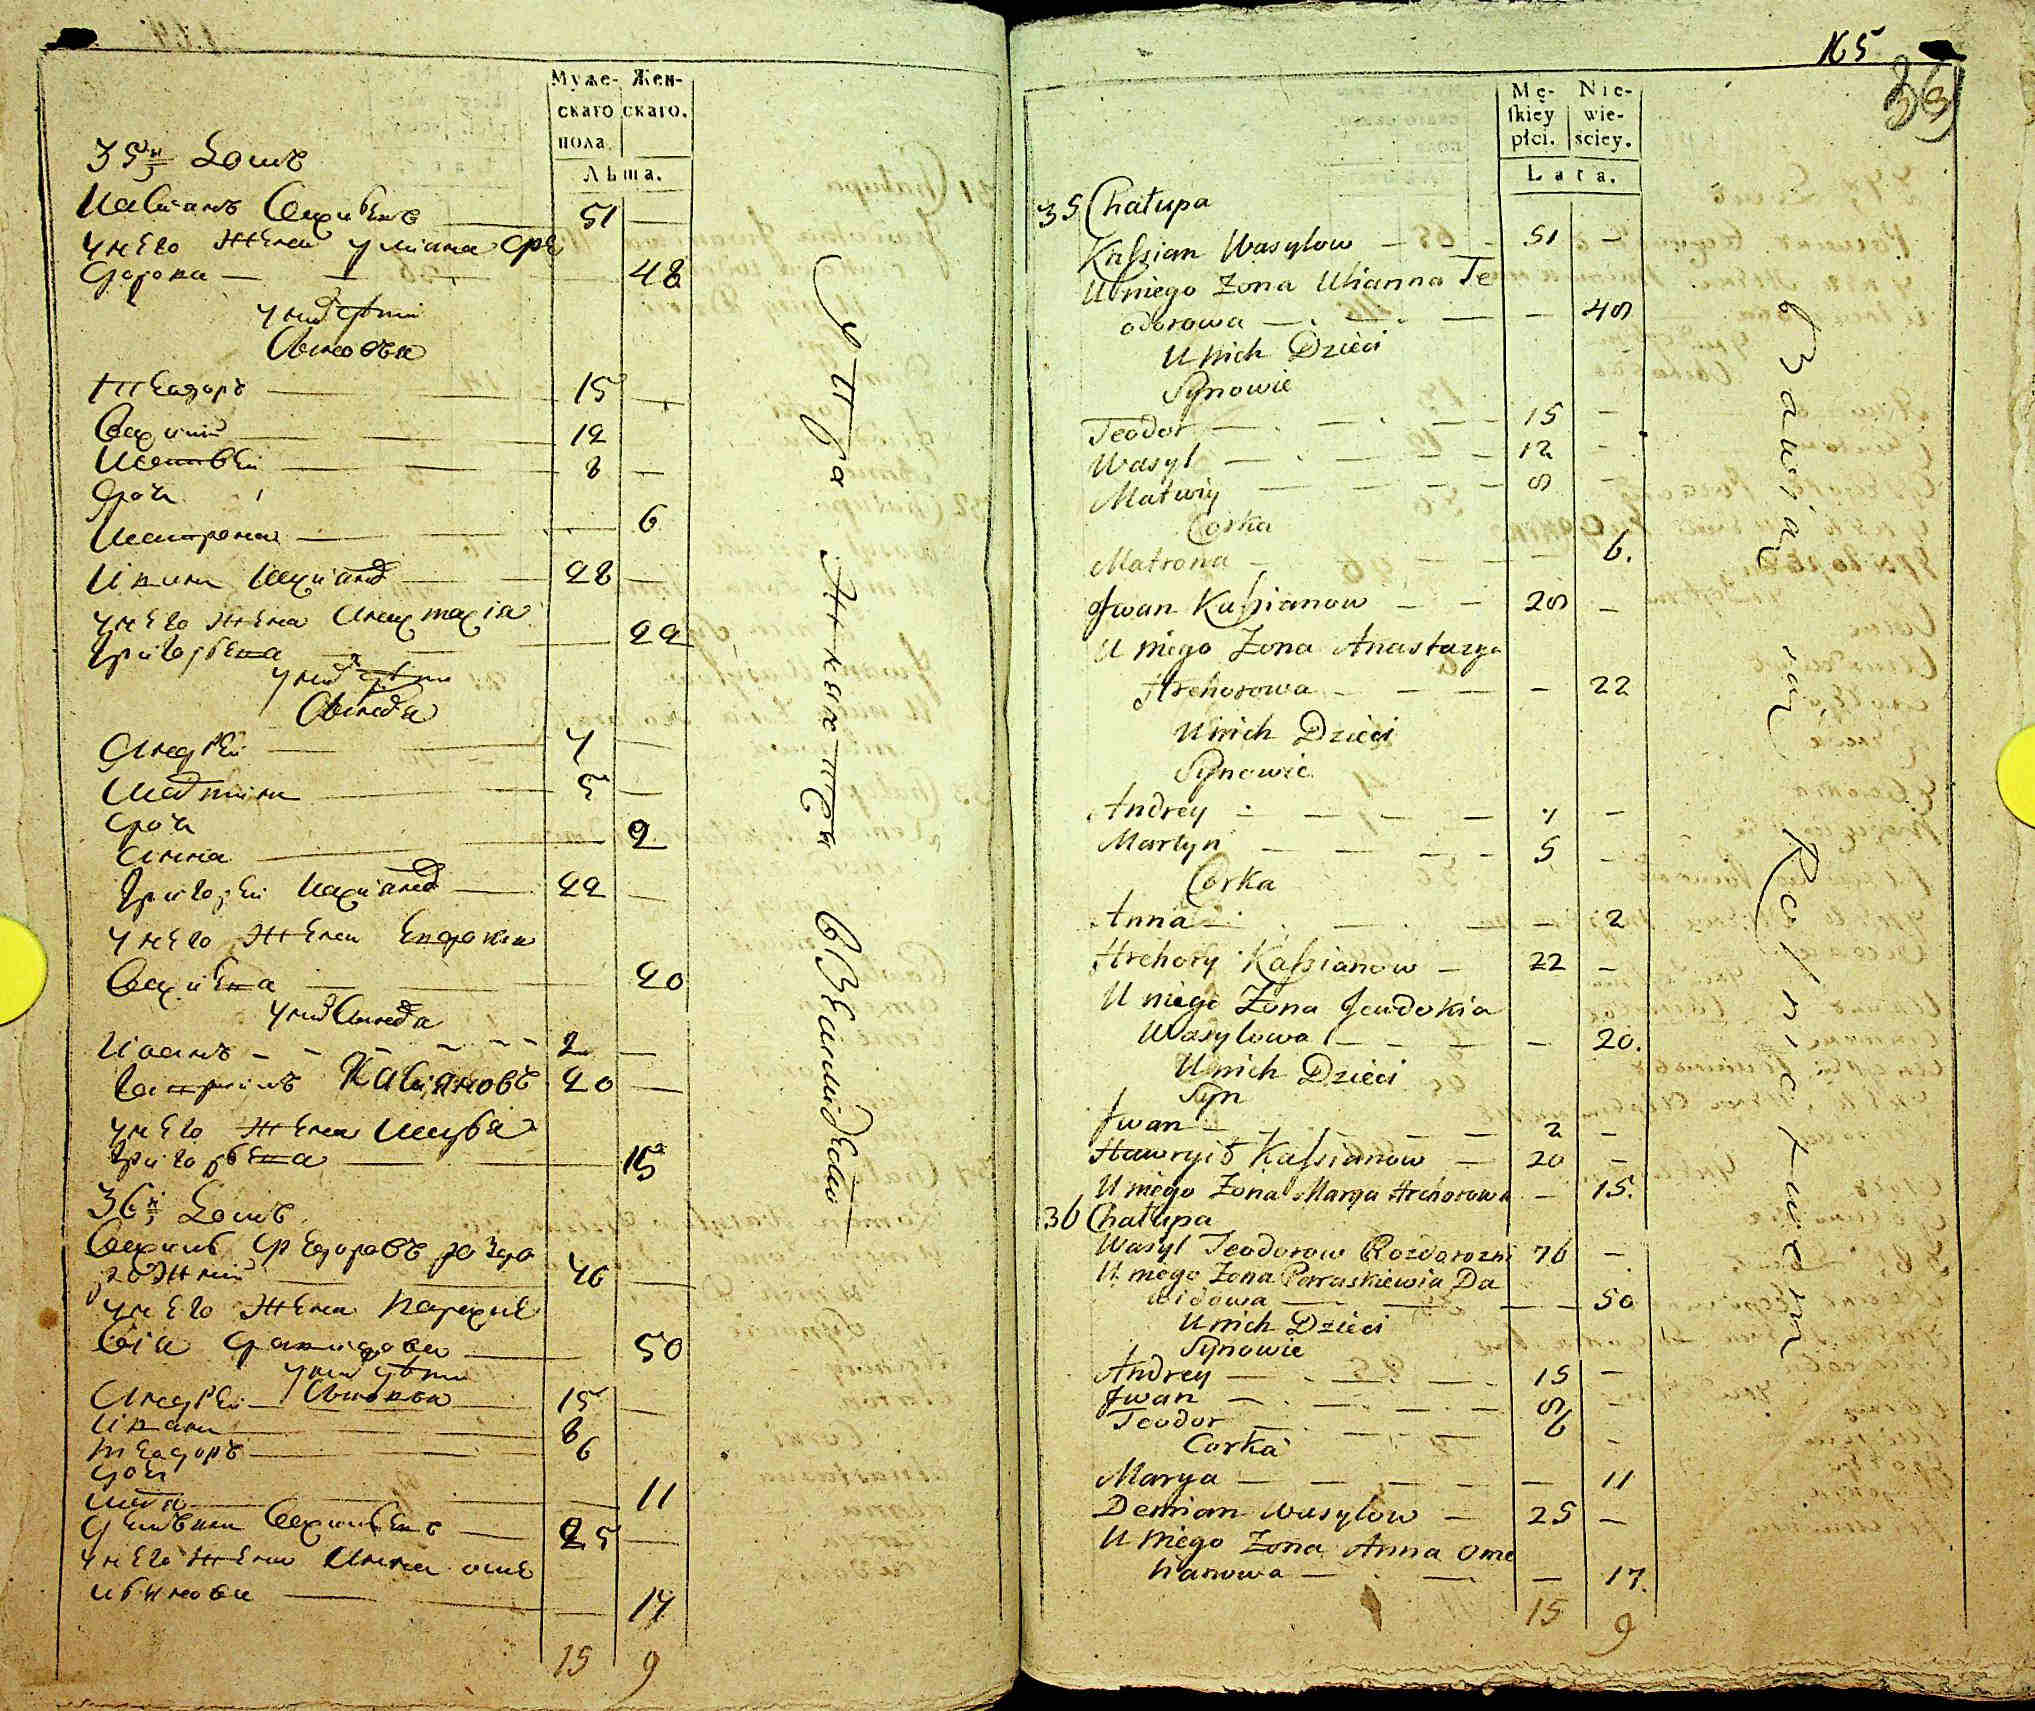 Муже-
скаго
пола.
Жен-
скаго.
Лѣта.
35й Домъ
Касіанъ Василіевъ — 51 —
у него жена Уліана Фео
дорова — 48
у них дѣти
Сыновья
Теодоръ — 15 —
Василій — 12
Матвѣй — 8 —
Дочь
Матрона — 6
Иван Касіанов — 28 —
у него жена Анастасія
Григорьева — 22
у них дѣти
Сыновья
Андрей — 7 —
Мартин — 5 —
Дочь
Анна — 2
Григорей Касіанов — 22 —
у него жена Евдокия
Васильева — 20
у них Сыновья
Иоанъ — 2 —
Гаврилъ Касіановъ 20 —
у него жена Марья
Григорьева — 15
36й Домъ
Василь Федоровъ роздо
рожній — 76 —
у него жена Параске
вія Давидова — 50
у них дѣти
Сыновья
Андрей — 15 —
Иван — 8
Теодоръ — 6
Дочь
Марья — 11
Демьян Васильевъ — 25 —
у него жена Анна оме
льянова — 17
15 9
165
33
Mę-
skiey
płci.
Nie-
wie-
sciey.
Lata.
35 Chałupa
Kassian Wasylow — 51 —
U niego Zona Ulianna Te
odorowa — 48
U nich Dzieci
Synowie
Teodor — 15 —
Wasyl — 12 —
Matwiy — 8 —
Corka
Matrona — 6.
Jwan Kassianow — 28 —
U niego Zona Anastazya
Hrehorowa — 22
U nich Dzieci
Synowie
Andrey — 7 —
Martyn — 5 —
Corka
Anna — 2
Hrehory Kassianow — 22 —
U niego Zona Jeudokia
Wasylowa — 20.
U nich Dzieci
Syn
Jwan — 2 —
Hawryił Kassianow — 20 —
U niego Zona Marya Hrehorowa — 15.
36 Chałupa
Wasyl Teodorow Rozdorozni 76 —
U niego Zona Parraskiewia Da
widowa — 50
U nich Dzieci
Synowie
Andrey — 15 —
Jwan — 8
Teodor — 6 —
Corka
Marya — 11
Demian Wasylow — 25 —
U niego Zona Anna Ome
lianowa — 17.
15 9
Bawią się Rolnictwem